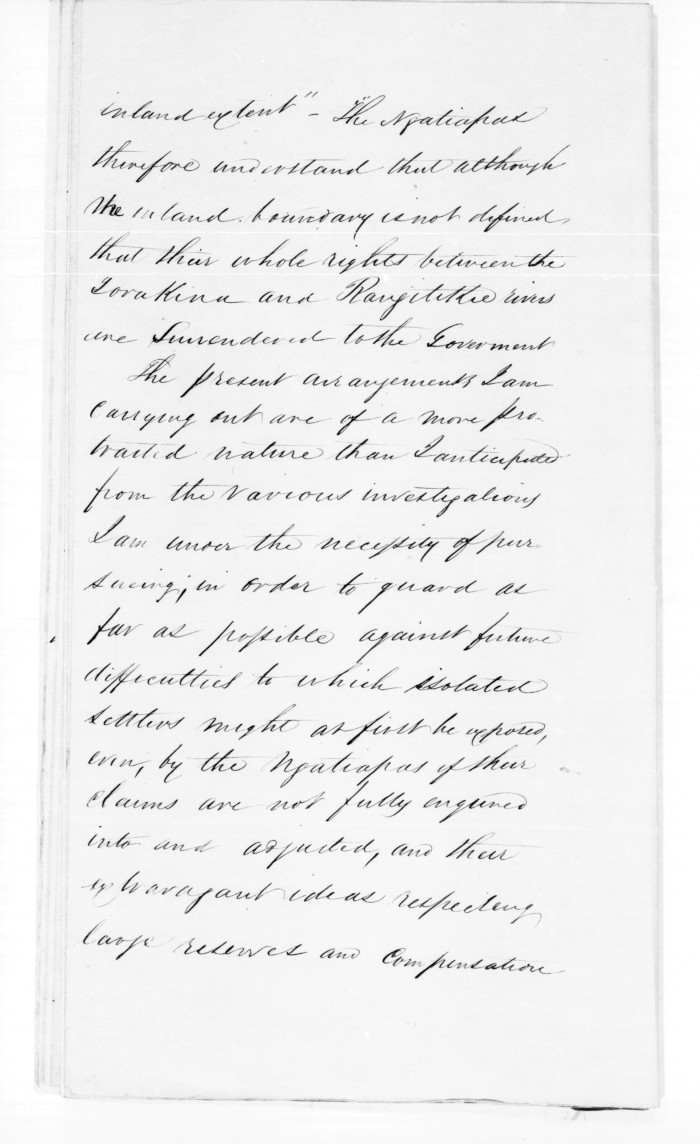 inland extent" - "The Ngatiapas
therefore understand that although
the inland boundary is not defined
that their whole rights between the
Torakina and Rangitikie rivers
are Surrendered to the Goverment
The present arrangements I am
Carrying out are of a more pro-
tracted nature than I anticipated
from the various investigations
I am under the necessity of pur-
sueing, in order to guard as
far as possible against future
difficulties to which isolated
settlers might at first be exposed,
even, by the Ngatiapas if their
claims are not fully enquired
into and adjusted, and their
extravagant ideas respecting
large reserves and Compensation